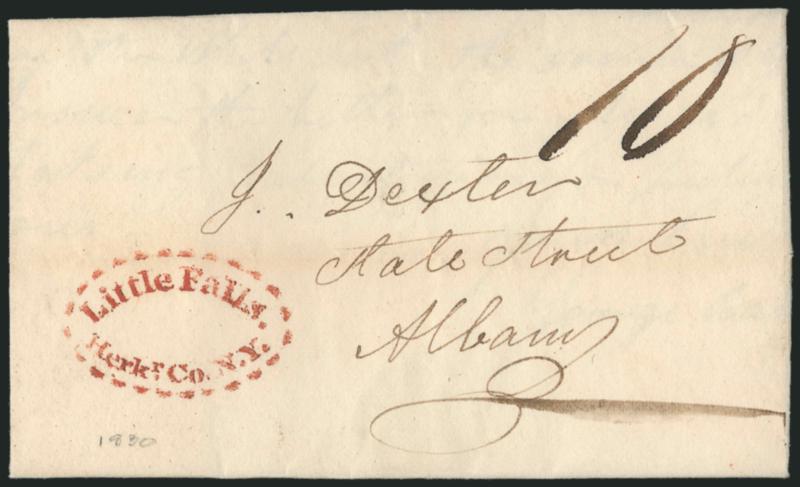 10
J. Dexter
State Street
Albany
Little Falls,
Herkr Co. N.Y.
1830